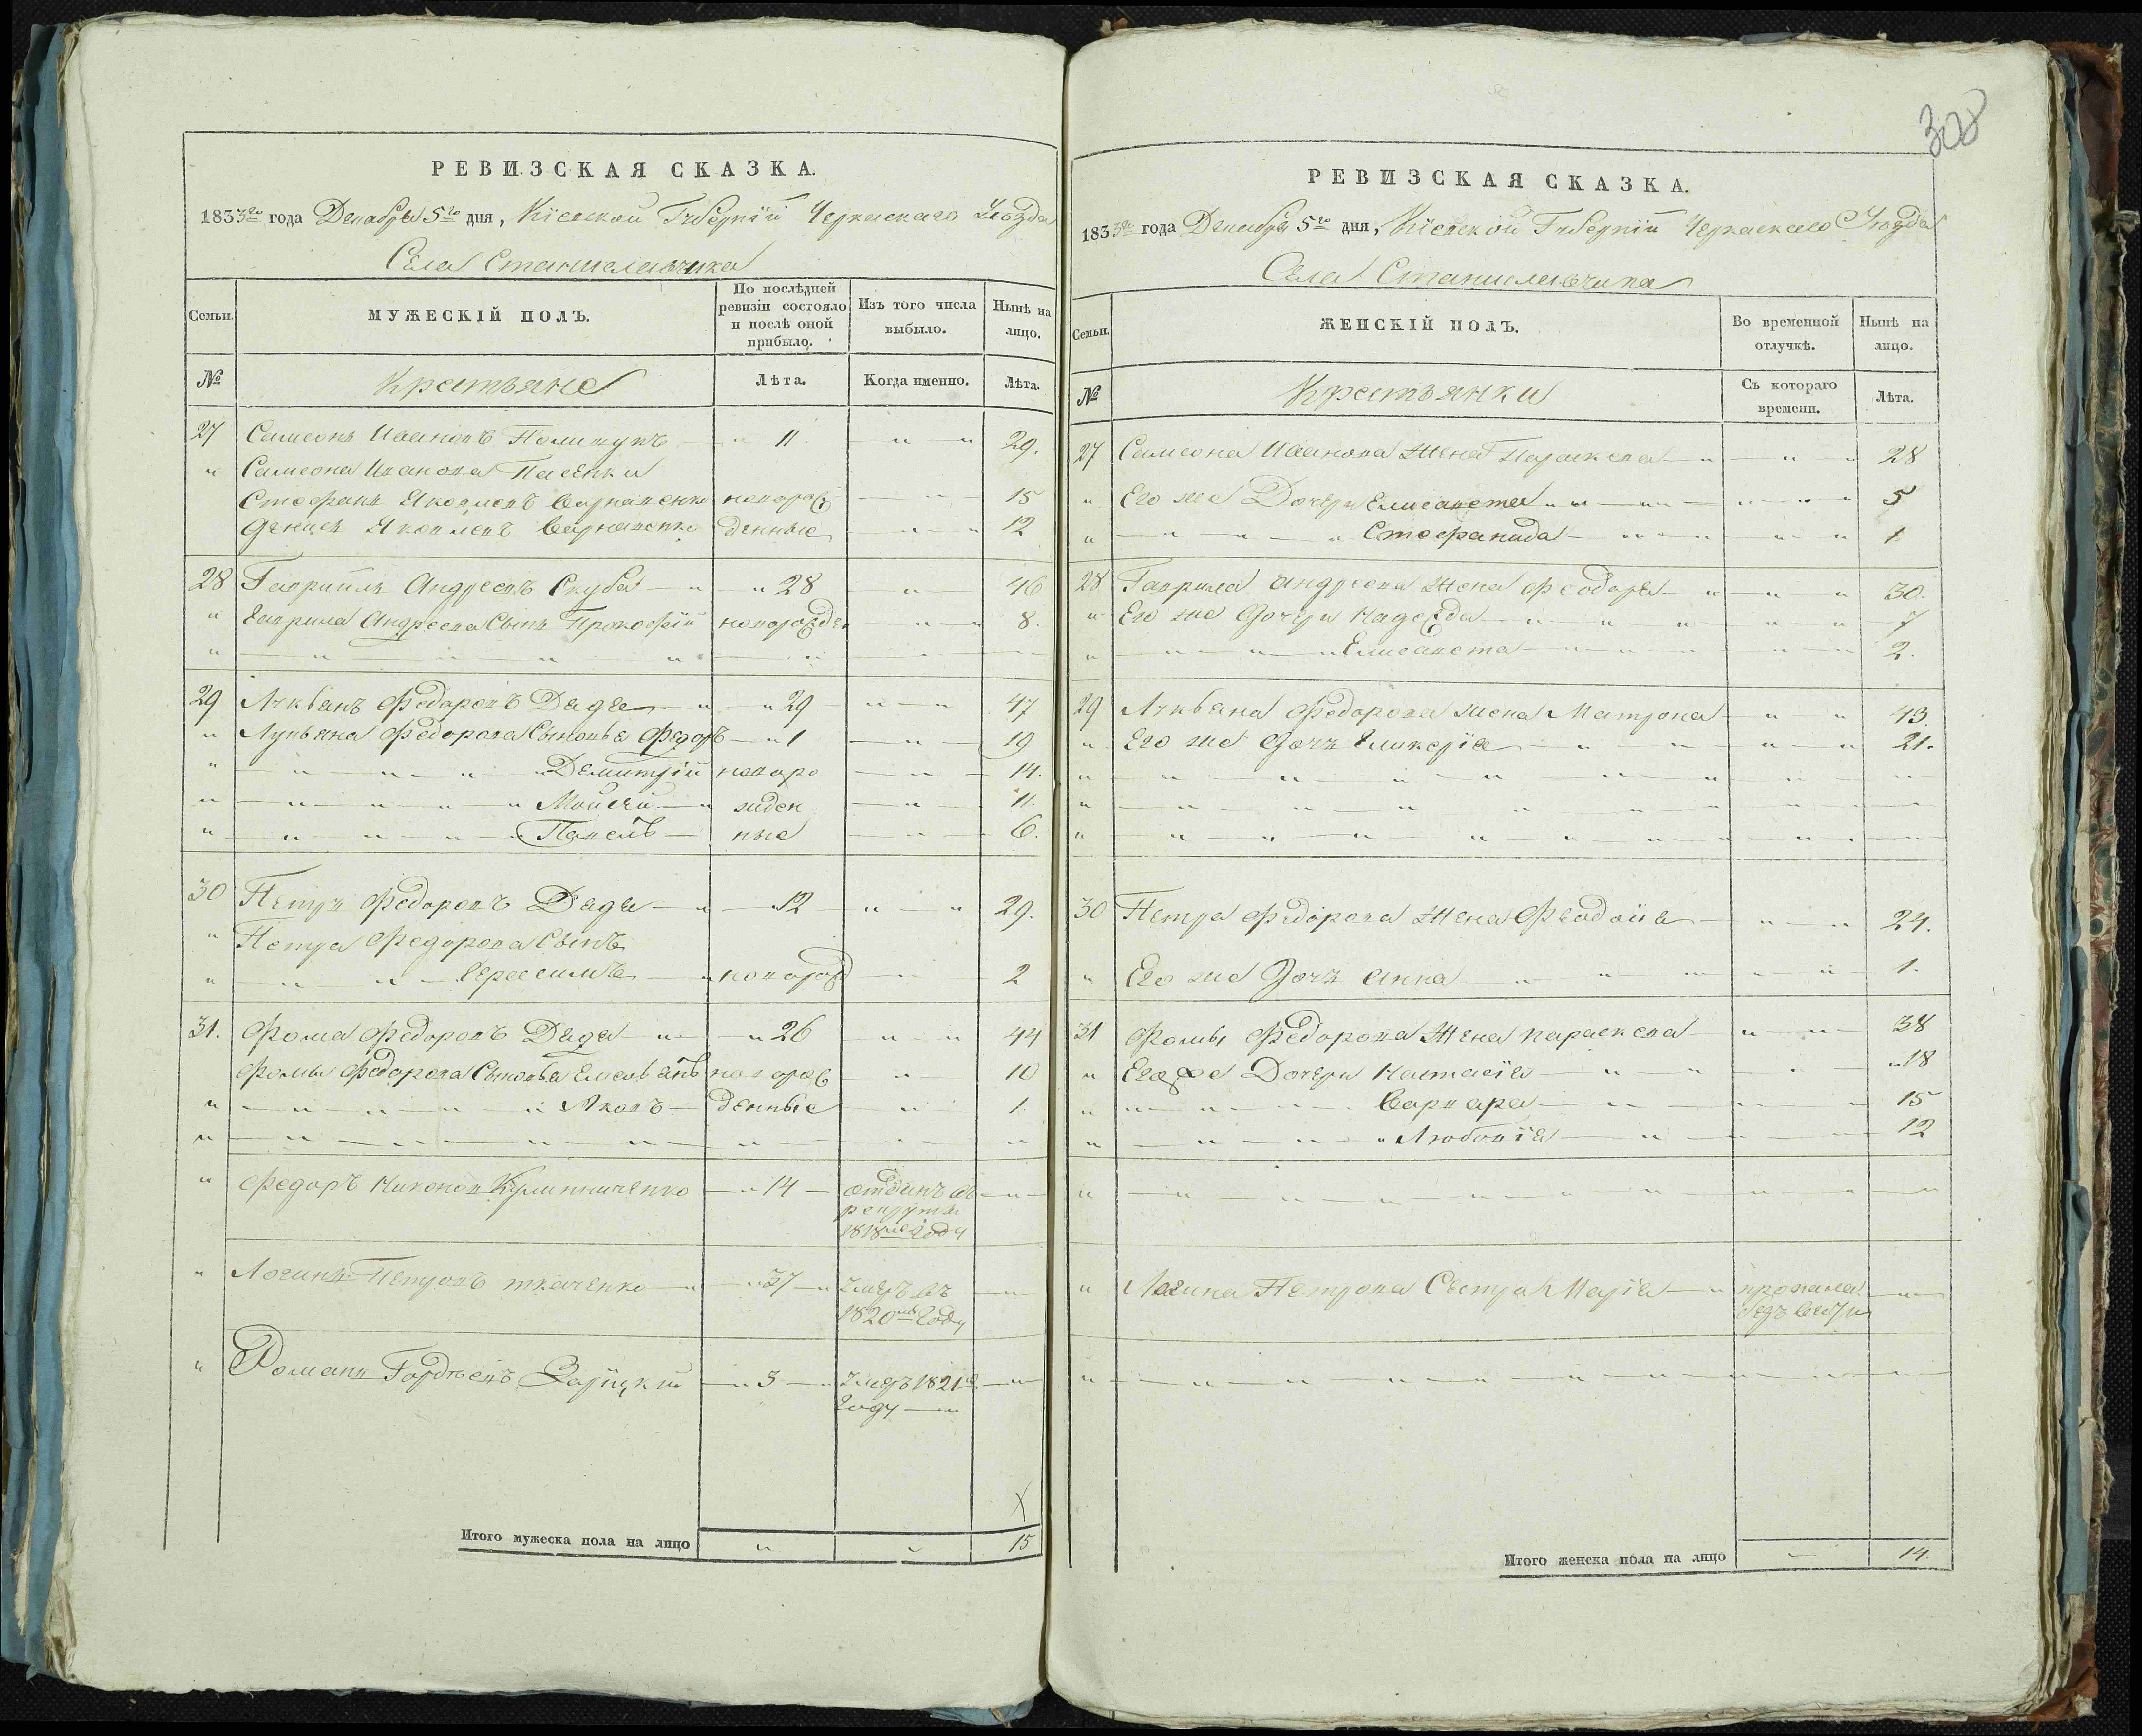 308
РЕВИЗСКАЯ СКАЗКА.
1833го года Декабря 5го дня, Кіевской Губерніи Черкаскаго Уезда
Села Станиславчика
Семьи.
МУЖЕСКІЙ ПОЛЪ.
По послѣдней ревизіи состояло и послѣ оной прибыло.
Изъ того числа выбыло.
Нынѣ на лицо.
№
Крестьяне
Лѣта.
Когда именно.
Лѣта.
27 Самсонъ Ивановъ Полищукъ 11 29.
Самсона Иванова Пасенки
Стефанъ Яковлевъ Варнавенко новорож 15
Денисъ Яковлевъ Варнавенко денные 12
28 Гаврийлъ Андреевъ Скуба 28 46
Гаврила Андреева Сынъ Прокофій новорожден 8.
29 Лукьянъ Федоровъ Дядя 29 47
Лукьяна Федорова Сыновья Федоръ 1 19
Демитрій новоро 14.
Мойсей жден 11.
Павелъ ные 6.
30 Петръ Федоровъ Дядя 12 29.
Петра Федорова Сынъ
Герасимъ новорож 2
31. Фома Федоровъ Дядя 26 44
Фомы Федорова Сыновья Емельянъ новорож 10
Яковъ денные 1
Федоръ Никонов 14 отданъ въ
рекруты
1818м году
Логинъ Петровъ ткаченко 37 умеръ въ
1820мъ Году
Романъ Гордѣевъ Зарицкий 3 умеръ 1821
году
Итого мужеска пола на лицо 15
РЕВИЗСКАЯ СКАЗКА.
1833го года Декабря 5го дня, Кіевской Губерніи Черкаскаго Уезда
Села Станиславчика
Семьи.
ЖЕНСКІЙ ПОЛЪ.
Во временной отлучкѣ.
Нынѣ на лицо.
№
Крестьянки
Съ котораго времени.
Лѣта.
27 Самсона Иванова Жена Параскева 28
Его же Дочери Елисавета 5
Стефанида 1
28 Гаврила Андреева Жена Феодора 30.
Его же Дочери Надежда 7
Елисавета 2.
29 Лукьяна Федорова жена Матрона 43.
Его же Дочь Гликерія 21.
30 Петра Федорова Жена Феодосія 24.
Его же Дочь Анна 1.
31 Фомы Федорова Жена параскева 38
Его же Дочери Настасія 18
Варвара 15
Любовія 12
Логина Петрова Сестра Марія пропала
безъ вести
Итого женска пола на лицо 14.